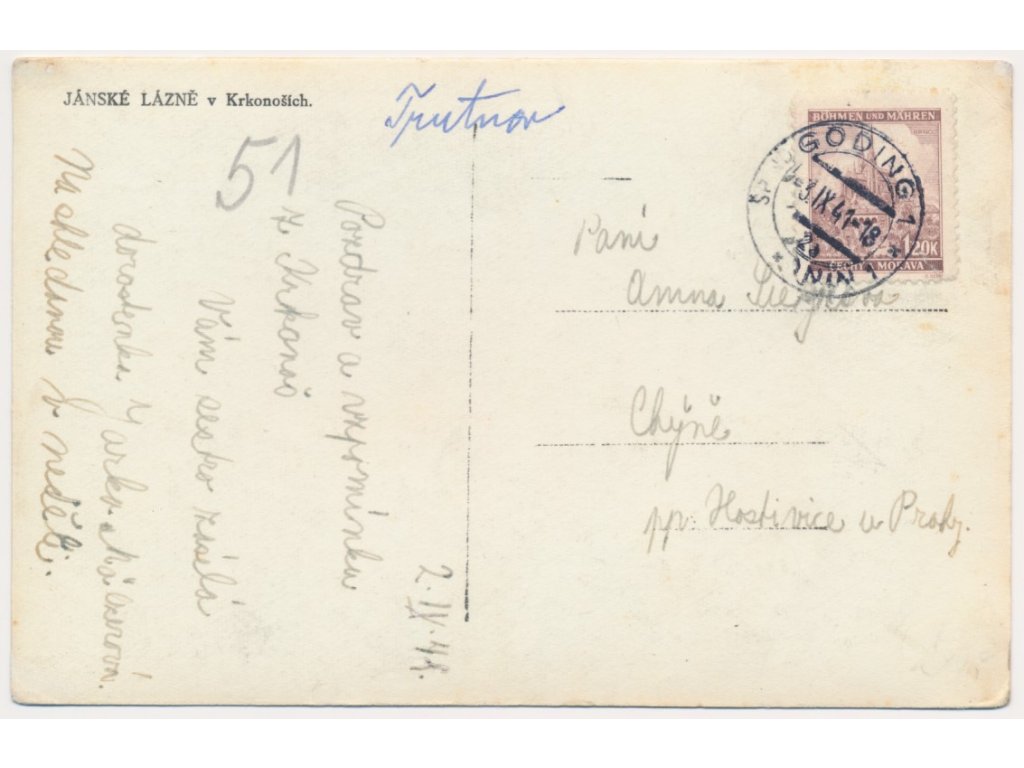 JÁNSKÉ LÁZNĚ v Krkonoších.
Trutnov
51
2. IX. 41.
Pozdrav a vzpomínku
z Krkonoš
Vám sestro zasílá
dorostenka
Na shledanou v neděli.
BÖHMEN UND MÄHREN
GÖDING 1
-3.IX.41-18
1.20K
MORAVA
Paní
Anna
Chýně
pp. Hostivice u Prahy.